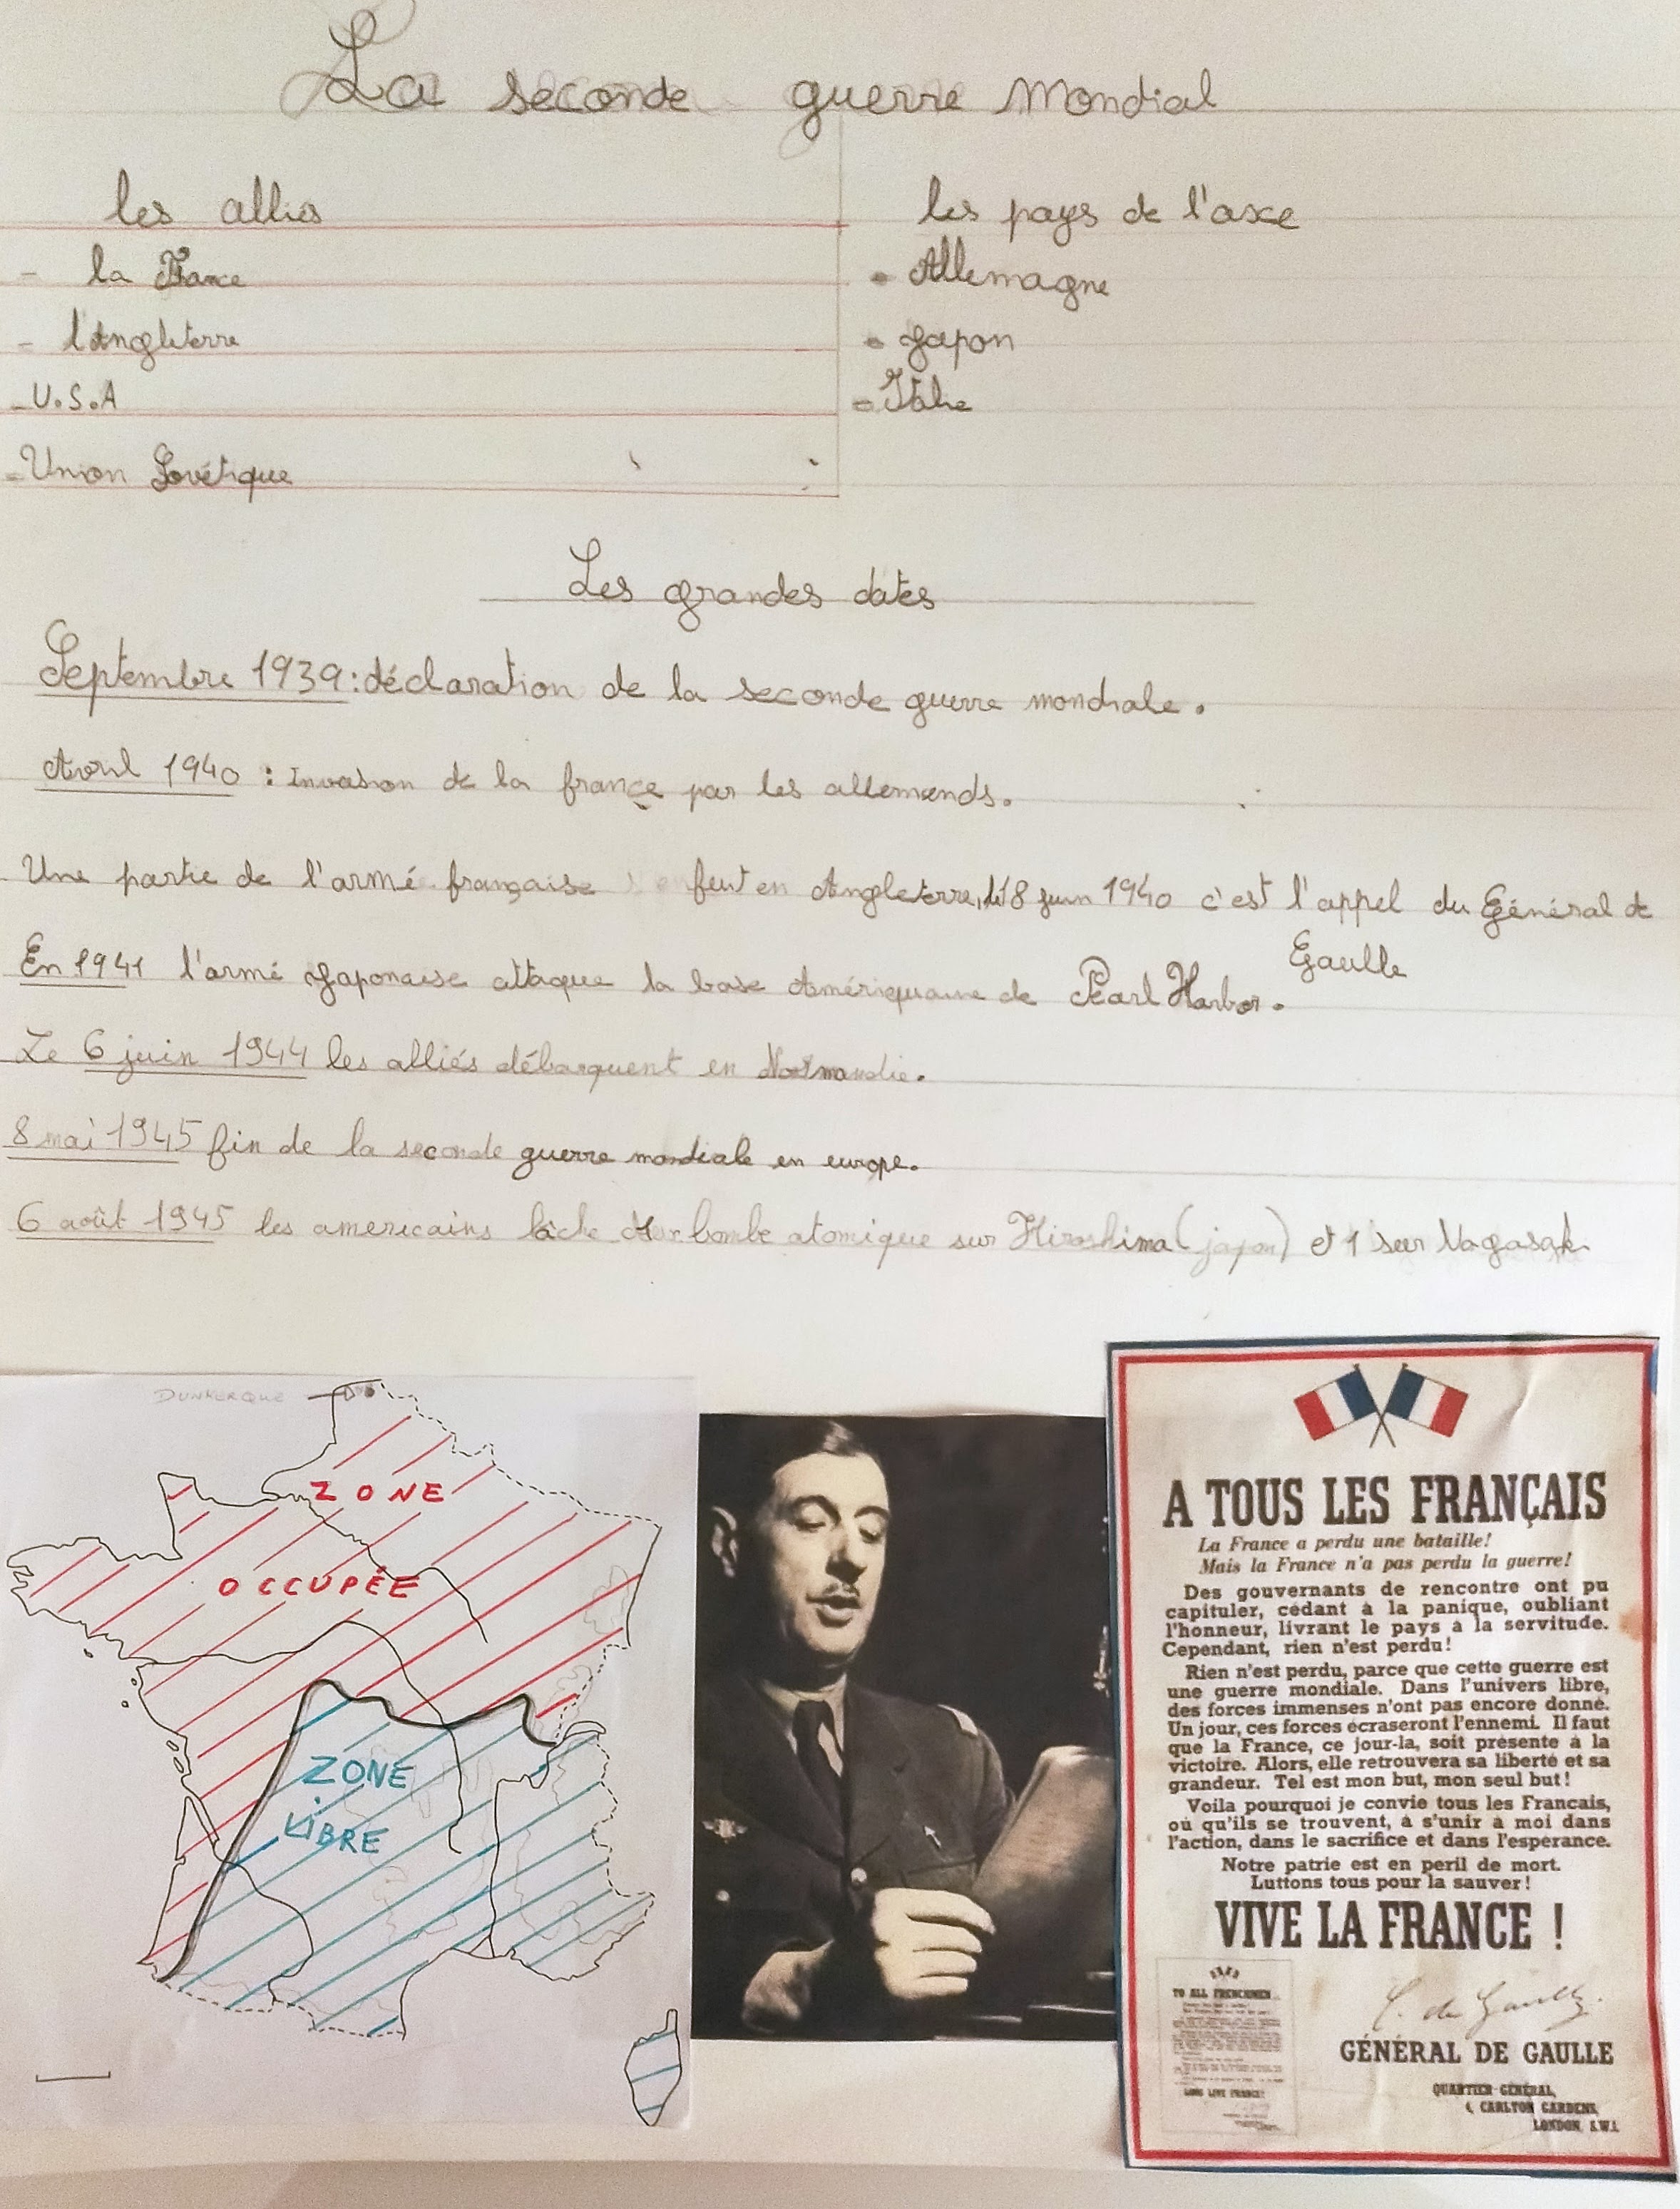 La seconde guerre Mondial
les alliés
les pays de l'axe
- la France
- Allemagne
- l'Angleterre
- Japon
- U.S.A
- Italie
- Union Sovétique
Les grandes dates
Septembre 1939 : déclaration de la seconde guerre mondiale.
Avril 1940 : Invasion de la france par les allemends.
Une partie de l'armé française fuit en Angleterre, le 18 juin 1940 c'est l'appel du Général de
Gaulle
En 1941 l'armé Japonaise attaque la base Amériquaine de Pearl Harbor.
Le 6 juin 1944 les alliés débarquent en Normandie.
8 mai 1945 fin de la seconde guerre mondiale en europe.
6 août 1945 les americains lâche bombe atomique sur Hiroshima (japon) et 1 sur Nagasaki
DUNKERQUE
ZONE
OCCUPÉE
ZONE
LIBRE
A TOUS LES FRANÇAIS
La France a perdu une bataille!
Mais la France n'a pas perdu la guerre!
Des gouvernants de rencontre ont pu
capituler, cédant à la panique, oubliant
l'honneur, livrant le pays à la servitude.
Cependant, rien n'est perdu!
Rien n'est perdu, parce que cette guerre est
une guerre mondiale. Dans l'univers libre,
des forces immenses n'ont pas encore donné.
Un jour, ces forces écraseront l'ennemi. Il faut
que la France, ce jour-la, soit présente à la
victoire. Alors, elle retrouvera sa liberté et sa
grandeur. Tel est mon but, mon seul but!
Voila pourquoi je convie tous les Francais,
où qu'ils se trouvent, à s'unir à moi dans
l'action, dans le sacrifice et dans l'espérance.
Notre patrie est en peril de mort.
Luttons tous pour la sauver!
VIVE LA FRANCE !
TO ALL FRENCHMEN
LONG LIVE FRANCE!
C. de Gaulle.
GÉNÉRAL DE GAULLE
QUARTIER-GÉNÉRAL,
4, CARLTON GARDENS,
LONDON, S.W.1.